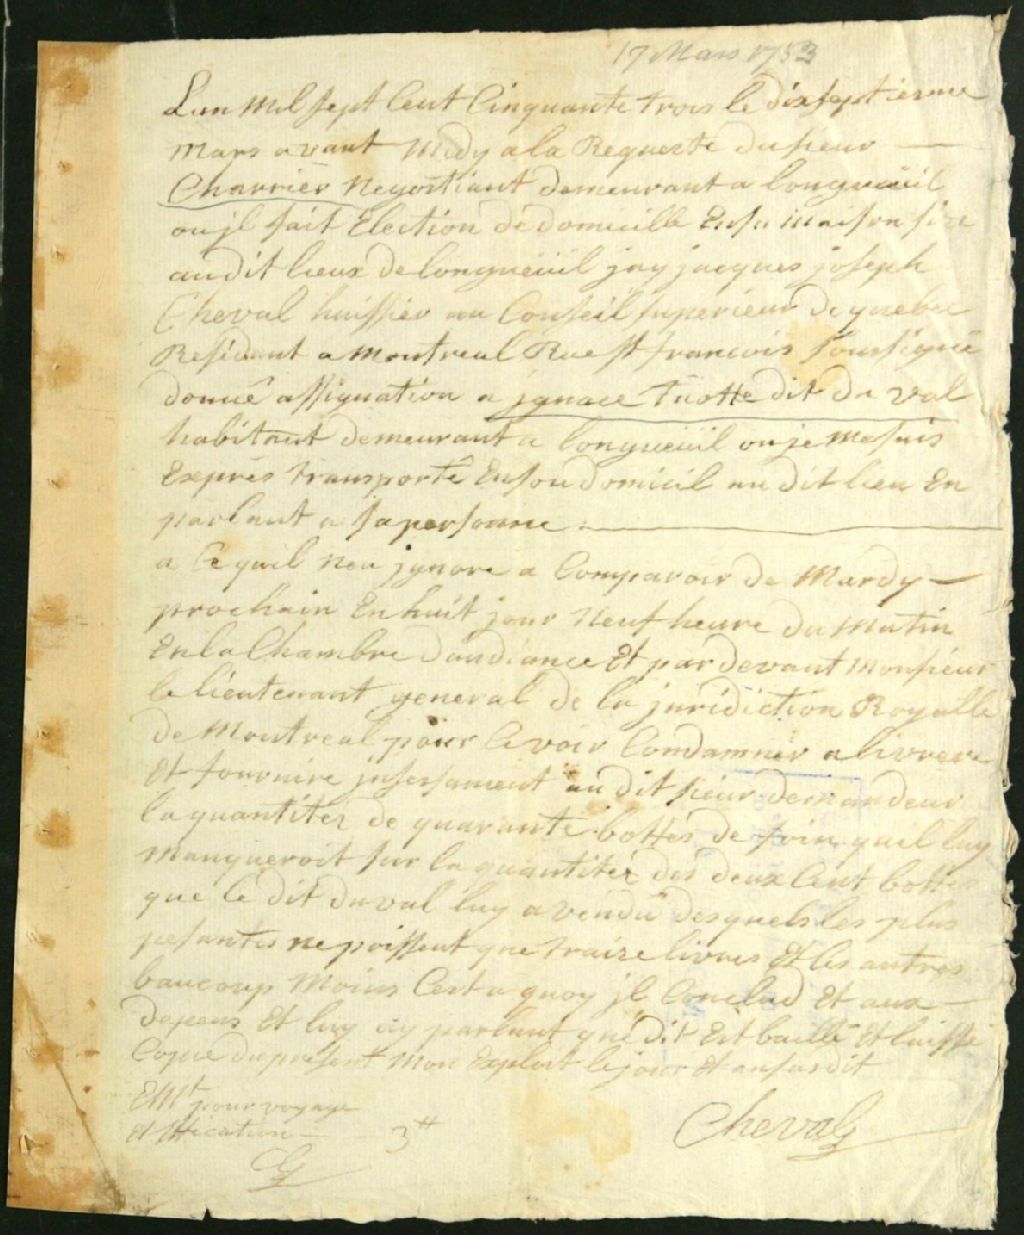 17 Mars 1753
Lan Mil sept Cent Cinquante trois le dix septiesme
Mars avant Midy a la Requeste du sieur
Charrier Negottiant demeurant a longueüil
ou jl fait Election de domicille En sa Maison size
audit lieux de longueüil jay jacques joseph
Cheval huissier au Conseil superieur de quebec
Residant a Montreal Rue st francois soussigné
donné assignation a jgnace Triotte dit du val
habitant demeurant a longueüil ou je me suis
Exprés transporté En son domicil au dit lieu En
parlant a sa personne
a Ce quil nen jgnore a Comparoir de Mardy
prochain En huit jour Neuf heure du Matin
En la Chambre daudiance Et par devant Monsieur
le lieutenant general de la juridiction Royalle
de Montreal pour Ce voir Condamner a livrere
Et fournire jnsersament au dit sieur demandeur
la quantitez de quarante bottes de foin quil luy
Manqueroit sur la quantitez des deux Cent bottes
que le dit duval luy a vendu desquels les plus
pesantes ne poissent que traize livres Et les autres
baucoup Moins Cest a quoy jl Conclud Et aux
depens Et luy ay parlant que dit Est baillé Et laissé
Copie du present Mon Exploit le jour Et an susdit
pour voyage
3 ₶
Cheval